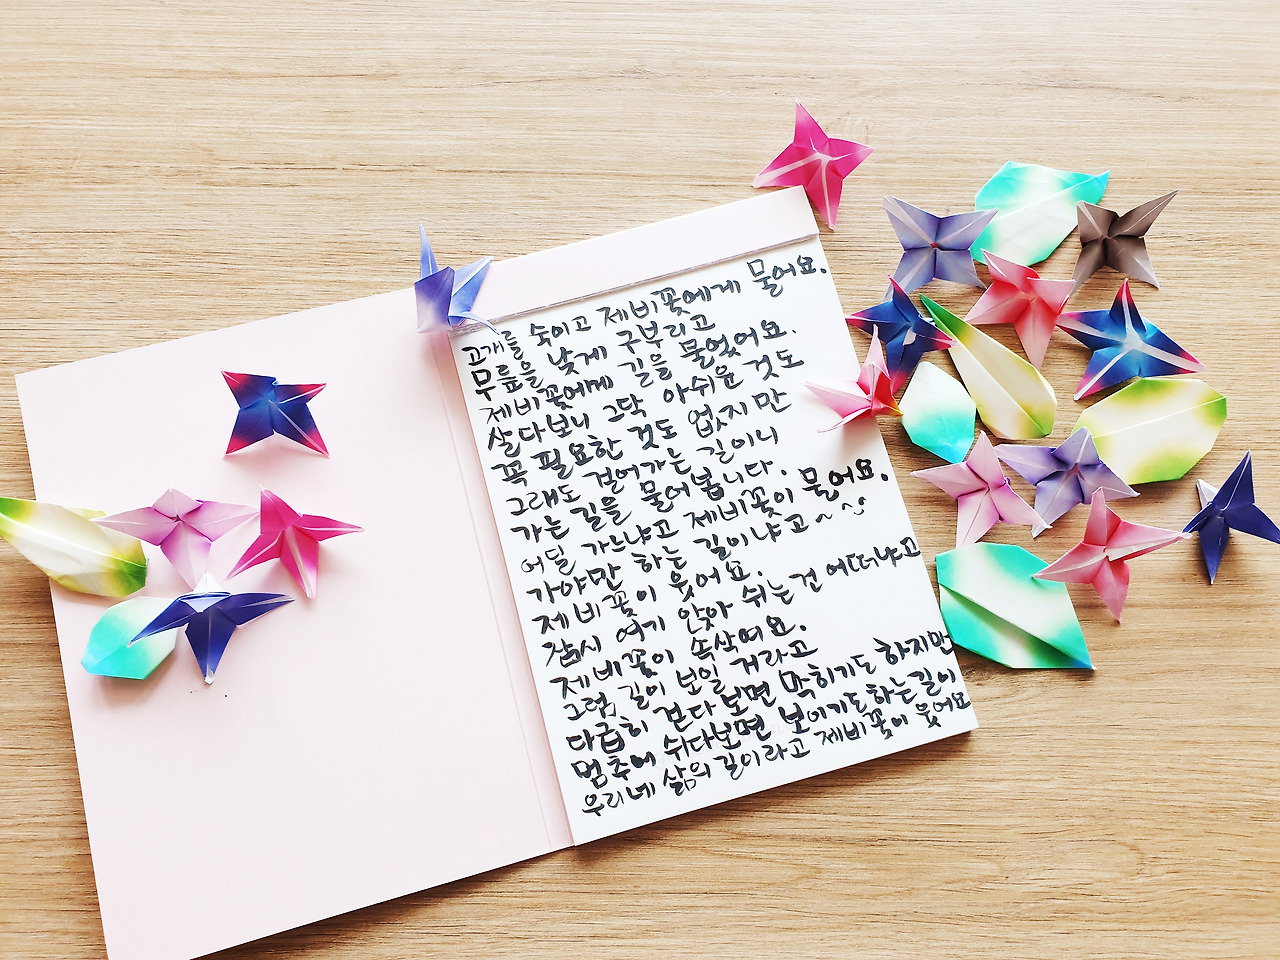 고개를 숙이고 제비꽃에게 물어요.
무릎을 낮게 구부리고
제비꽃에게 길을 물었어요.
살다보니 그닥 아쉬운 것도
꼭 필요한 것도 없지만
그래도 걸어가는 길이니
가는 길을 물어봅니다.
어딜 가느냐고 제비꽃이 물어요.
가야만 하는 길이냐고~
제비꽃이 웃어요.
잠시 여기 앉아 쉬는건 어떠냐고
제비꽃이 속삭여요.
그럼 길이 보일 거라고
다급히 걷다보면 막히기도 하지만
멈추어 쉬다보면 보이기도하는길이
우리네 삶의 길이라고 제비꽃이 웃어요